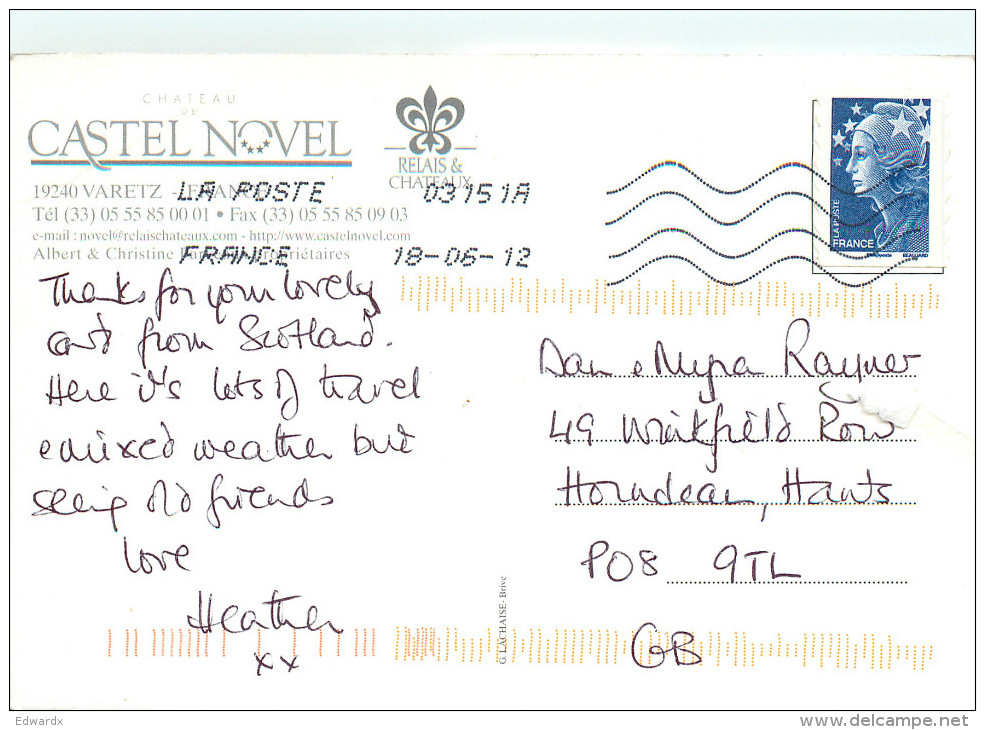 CHATEAU
DE
CASTEL NOVEL
RELAIS &
CHATEAUX
19240 VARETZ - FRANCE
Tél (33) 05 55 85 00 01 • Fax (33) 05 55 85 09 03
e-mail : novel@relaischateaux.com - http://www.castelnovel.com
Albert & Christine propriétaires
LA POSTE 03151A
FRANCE 18-06-12
LA POSTE
FRANCE
BEAUJARD
Thanks for your lovely
card from Scotland.
Here it's lots of travel
& mixed weather but
seeing old friends
love
Heather
xx
Dan & Myra Rayner
49 Winkfield Row
Horndean, Hants
PO8 9TL
GB
G. LACHAISE - Brive
Edwardx
www.delcampe.net